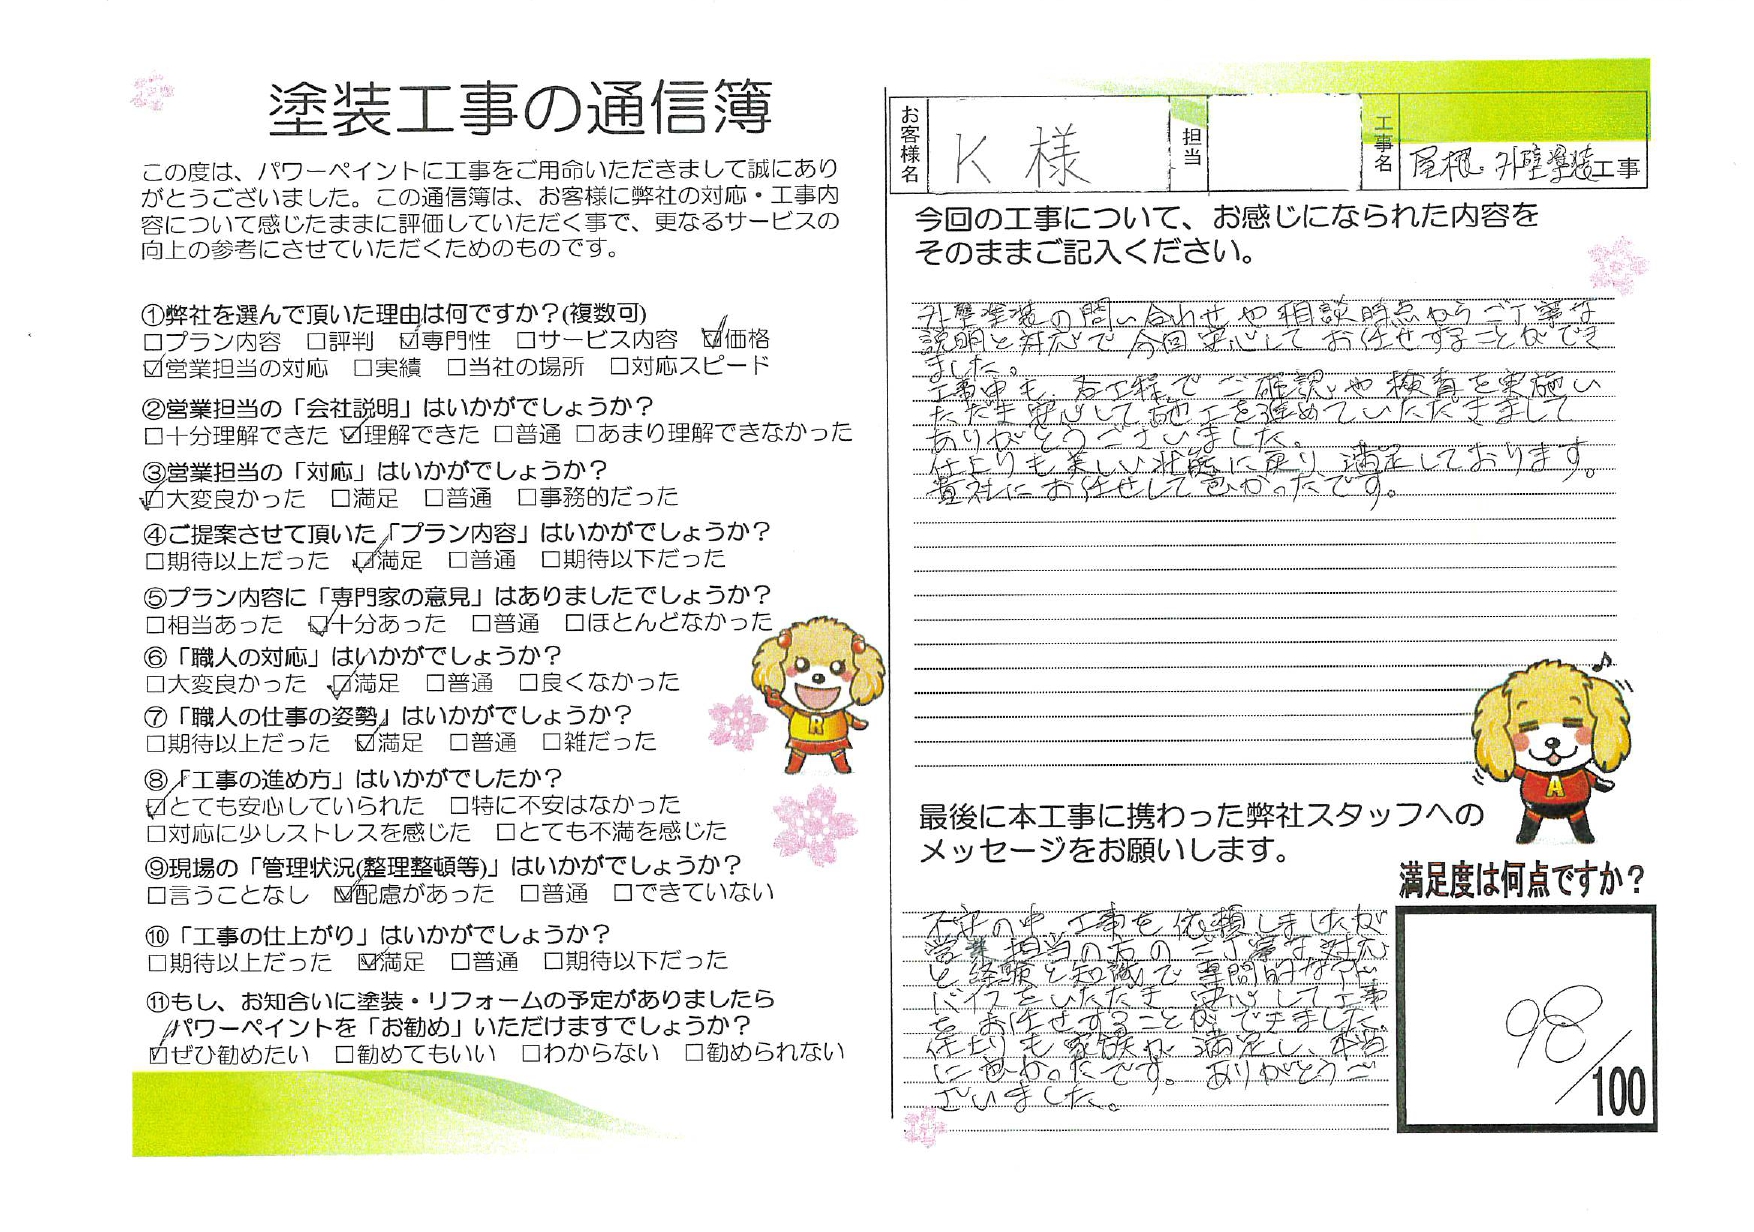 塗装工事の通信簿
この度は、パワーペイントに工事をご用命いただきまして誠にあり
がとうございました。この通信簿は、お客様に弊社の対応・工事内
容について感じたままに評価していただく事で、更なるサービスの
向上の参考にさせていただくためのものです。
①弊社を選んで頂いた理由は何ですか？(複数可)
□プラン内容 □評判 ☑専門性 □サービス内容 ☑価格
☑営業担当の対応 □実績 □当社の場所 □対応スピード
②営業担当の「会社説明」はいかがでしょうか？
□十分理解できた ☑理解できた □普通 □あまり理解できなかった
③営業担当の「対応」はいかがでしょうか？
☑大変良かった □満足 □普通 □事務的だった
④ご提案させて頂いた「プラン内容」はいかがでしょうか？
□期待以上だった ☑満足 □普通 □期待以下だった
⑤プラン内容に「専門家の意見」はありましたでしょうか？
□相当あった ☑十分あった □普通 □ほとんどなかった
⑥「職人の対応」はいかがでしょうか？
□大変良かった ☑満足 □普通 □良くなかった
⑦「職人の仕事の姿勢」はいかがでしょうか？
□期待以上だった ☑満足 □普通 □雑だった
⑧「工事の進め方」はいかがでしたか？
☑とても安心していられた □特に不安はなかった
□対応に少しストレスを感じた □とても不満を感じた
⑨現場の「管理状況(整理整頓等)」はいかがでしょうか？
□言うことなし ☑配慮があった □普通 □できていない
⑩「工事の仕上がり」はいかがでしょうか？
□期待以上だった ☑満足 □普通 □期待以下だった
⑪もし、お知合いに塗装・リフォームの予定がありましたら
パワーペイントを「お勧め」いただけますでしょうか？
☑ぜひ勧めたい □勧めてもいい □わからない □勧められない
R
お客様名 K 様 担当 工事名 屋根・外壁塗装工事
今回の工事について、お感じになられた内容を
そのままご記入ください。
外壁塗装の問い合わせや相談時点からご丁寧な
説明と対応で今回安心してお任せすることができ
ました。
工事中も、各工程でご確認や検査を実施い
ただき安心して施工を進めていただきまして
ありがとうございました。
仕上りも美しい状態に戻り満足しております。
貴社にお任せして良かったです。
A
最後に本工事に携わった弊社スタッフへの
メッセージをお願いします。
不安の中、工事を依頼しましたが
営業担当の方のご丁寧な対応
と経験と知識で専門的なアド
バイスをいただき 安心して工事
をお任せすることができました。
仕上りも家族が満足し、本当
に良かったです。ありがとうご
ざいました。
満足度は何点ですか？
98/100